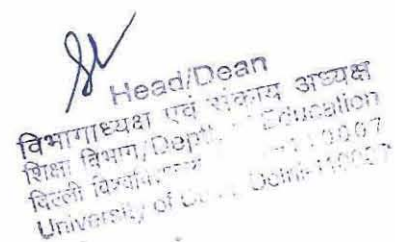 Head/Dean
विभागाध्यक्ष एवं संकाय अध्यक्ष
शिक्षा विभाग/Deptt. Education
दिल्ली विश्वविद्यालय
University of Delhi-110007